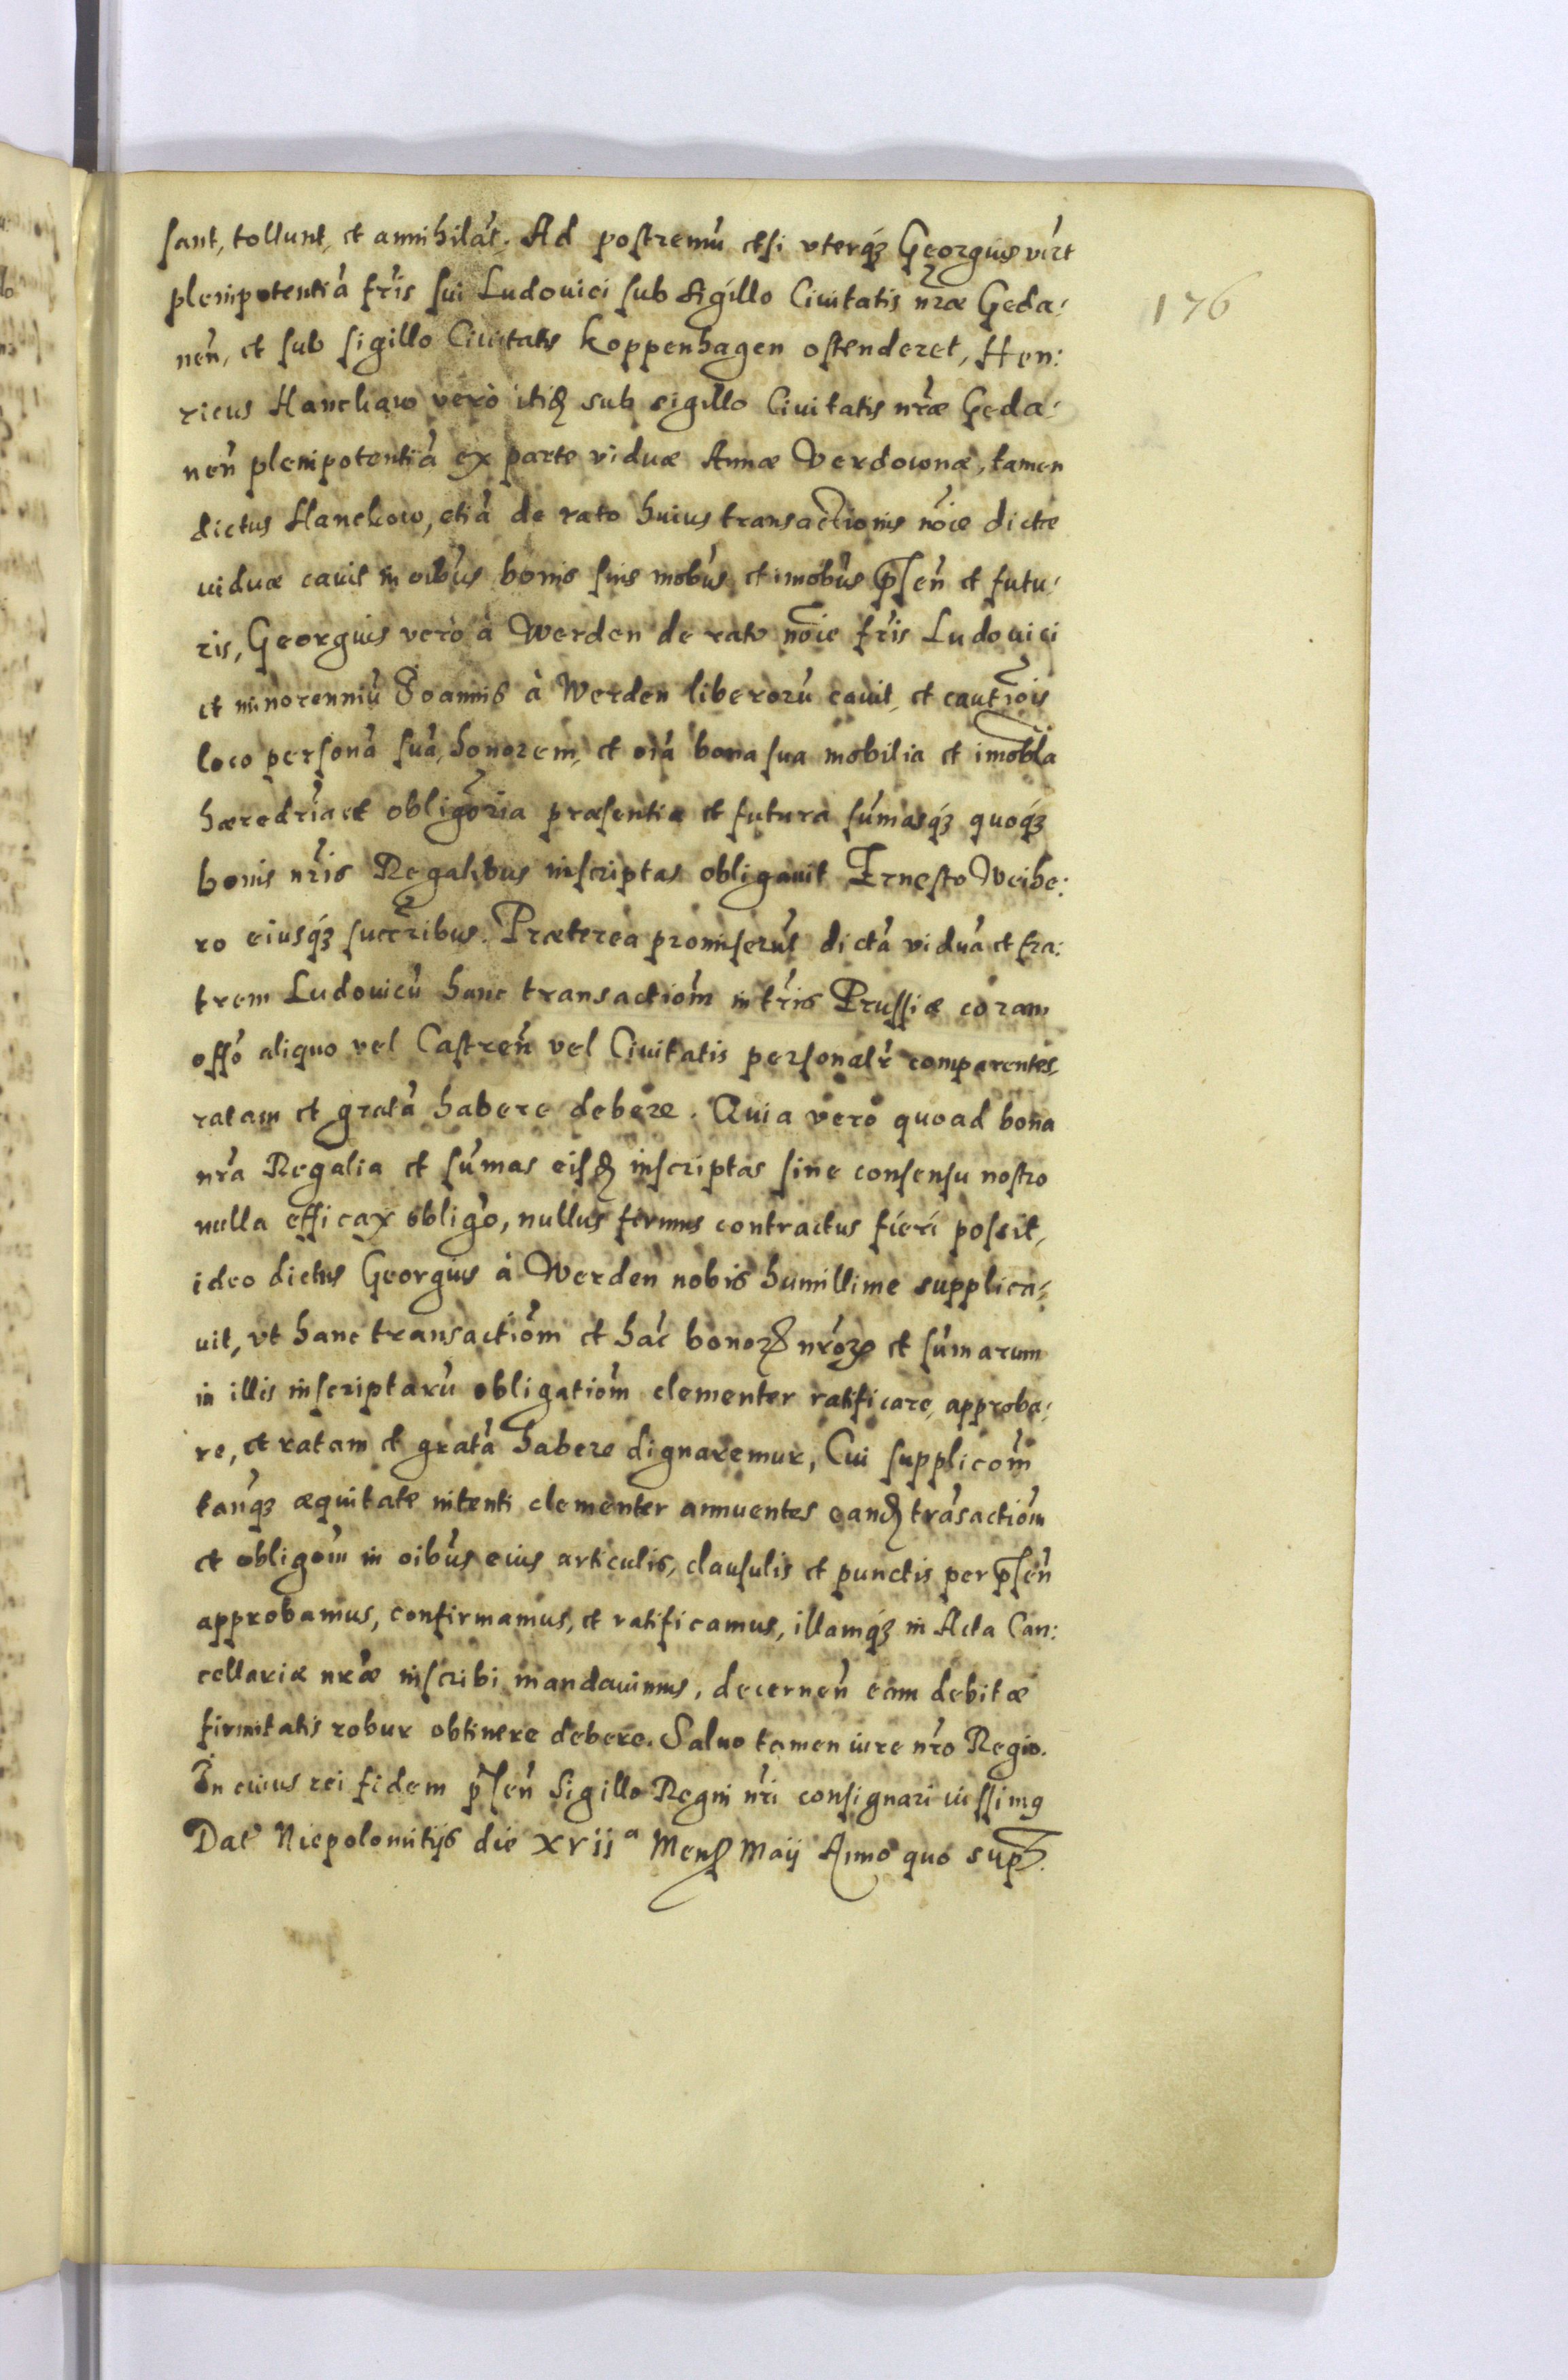 sant, tollunt, et annihilāt. Ad postremū etsi vterq́ꝫ Georgius vīzt
plenipotentiā frīs sui Ludouici sub sigillo Ciuitatis nr̄æ Geda:
nen̄, et sub sigillo Ciuitatis Koppenhagen ostenderet, Hen:
ricus Hanckaw verò itiđ sub sigillo Ciuitatis nr̄æ Geda:
nen̄ plenipotentiā ex parte viduæ Annæ Verdownæ, tamen
dictus Hanckow, etiā de rato huius transactionis nōie dictæ
uiduæ cauit in oībus bonis suis mobūs et imōbūs p̄sen̄ et futu:
ris, Georgius verò à Werden de rato nōie fr̄is Ludouici
et minorenniū Joannis à Werden liberorū cauit, et cautiōis
loco personā suā, honorem, et oīa bona sua mobilia et imōbla
hæredr̄ia et obligōria præsentia et futura sūmasq́ꝫ quoq́ꝫ
bonis nr̄is Regalibus inscriptas obligauit Ernesto Weihe:
ro eiusq́ꝫ succr̄ibus. Præterea promiserūt dictā viduā et fra:
trem Ludouicū hanc transactiōm in tr̄ris Prussiæ coram
offō aliquo vel Castren̄ vel Ciuitatis personalr̄ comparentes
ratam et gratā habere debere. Quia vero quoad bona
nr̄a Regalia et sūmas eisđ inscriptas sine consensu nostro
nulla efficax obligō, nullus firmus contractus fieri possit,
ideo dictus Georgius à Werden nobis humillime supplica:
uit, vt hanc transactiōm et hāc bonoꝝ nr̄oꝝ et sūmarum
in illis inscriptarū obligatiōm clementer ratificare, approba:
re, et ratam et gratā habere dignaremur, Cui supplicōm
tanq̄ꝫ æquitate nitenti clementer annuentes eanđ trāsactiōm
et obligōm in oībus eius articulis, clausulis et punctis per p̄sen̄
approbamus, confirmamus, et ratificamus, illamq́ꝫ in Acta Can:
cellariæ nr̄æ inscribi mandauimus, decernen̄ eam debitæ
firmitatis robur obtinere debere. Saluo tamen iure nr̄o Regio.
In cuius rei fidem p̄sen̄ Sigillo Regni nr̄i consignari iussimꝰ
Dat̄ Niepolomitijs die xvijᵃ Mens̄ Maij Anno quo sup̄.
176